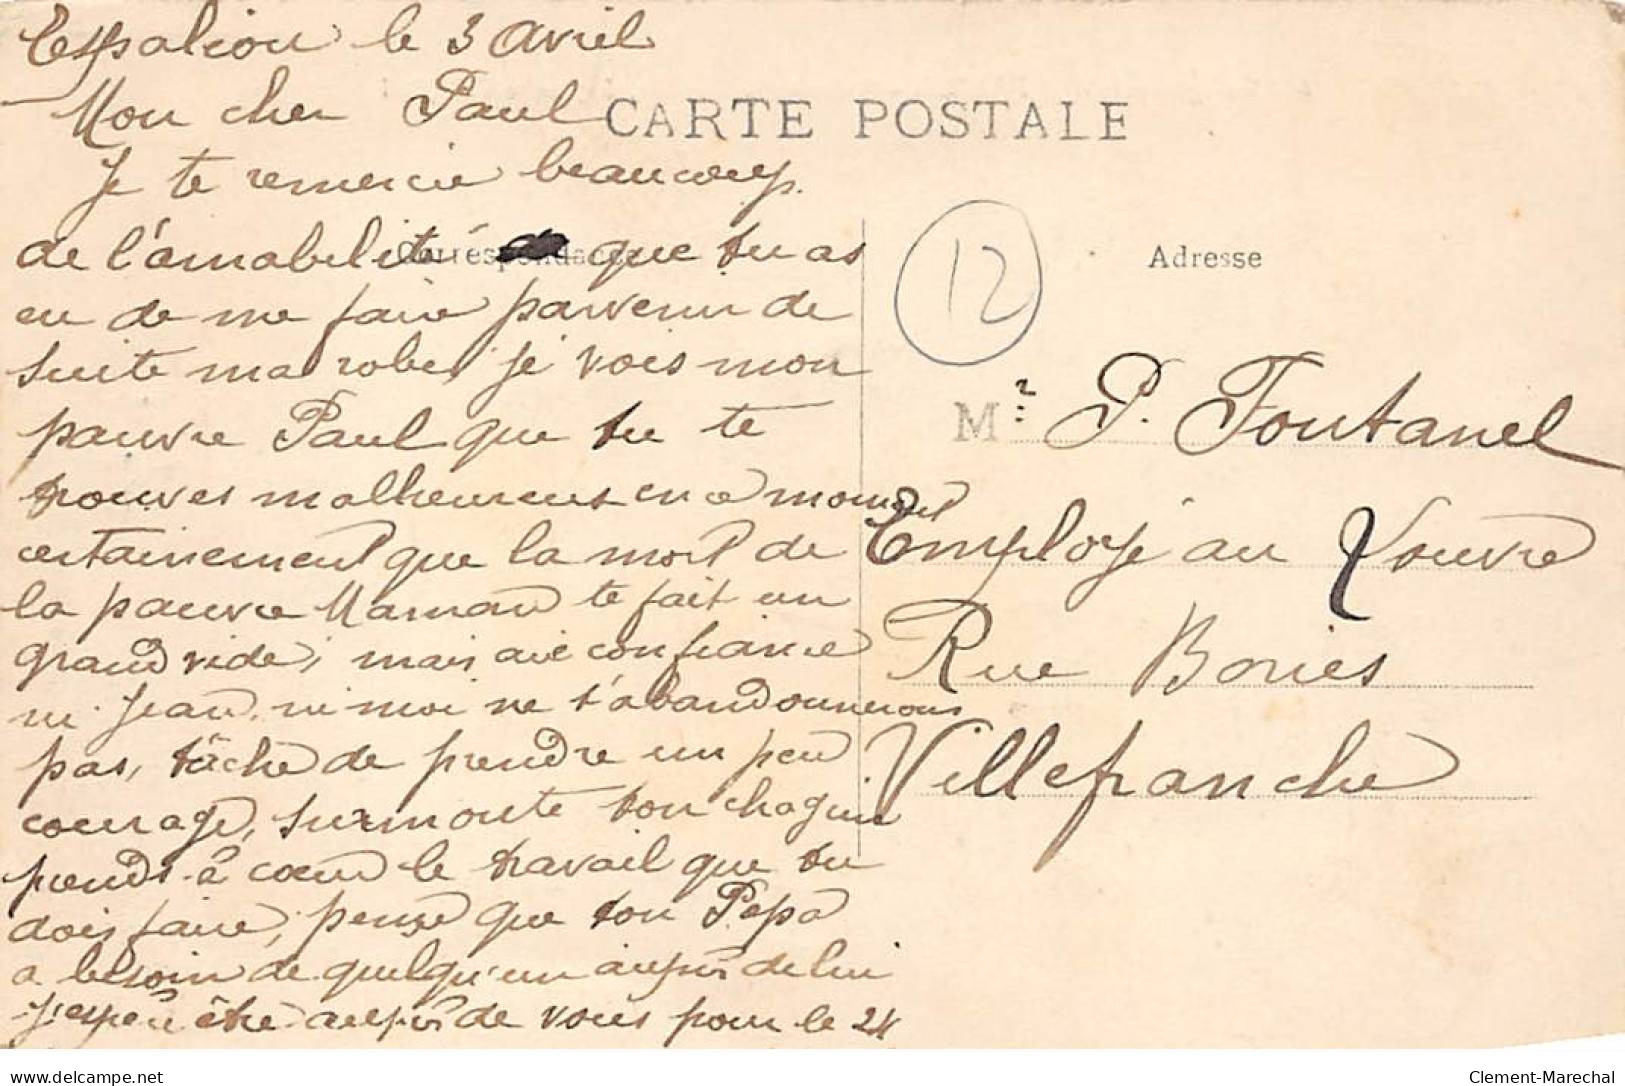 Espalion le 3 Avril
Mon cher Paul
CARTE POSTALE
Je te remercie beaucoup
de l'amabilité que tu as
eu de me faire parvenir de
suite ma robe, je vois mon
pauvre Paul que tu te
trouves malheureux en ce moment
certainement que la mort de
la pauvre Maman te fait un
grand vide, mais aie confiance
ni Jean, ni moi ne t'abandonnerons
pas, tâche de prendre un peu
courage, surmonte ton chagrin
prends à cœur le travail que tu
dois faire, pense que ton Papa
a besoin de quelqu'un auprès de lui
J'espère être auprès de vous pour le 24
Correspondance
12
Adresse
Mr P. Fontanel
Employé au Louvre
Rue Bories
Villefranche
delcampe.net
Clement-Marechal